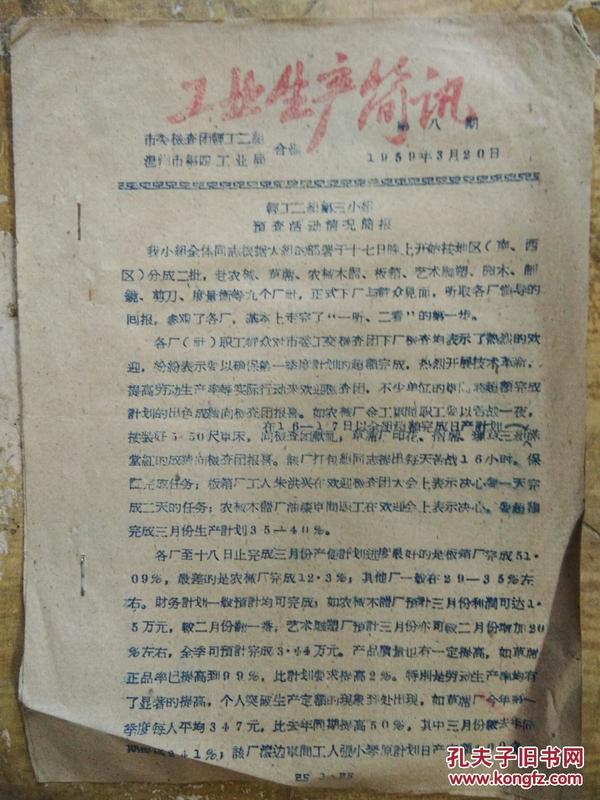 工业生产简讯
第八期
市委检查团轻工二组
温州市第四工业局
合编
1959年3月20日
轻工二组第三小组
预查活动情况简报
我小组全体同志根据大组的部署于十七日晚上开始按地区(南、西
区)分成二批，赴农械、草蓆、农械木器、板箱、艺术雕塑、园木、制
镜、剪刀、度量衡等九个厂社，正式下厂与群众见面，听取各厂领导的
回报，参观了各厂，基本上走完了“一听、二看”的第一步。
各厂(社)职工群众对市委工交检查团下厂检查均表示了热烈的欢
迎，纷纷表示要以确保第一季度計划的超额完成，热烈开展技术革新，
提高劳动生产率等实际行动来欢迎检查团，不少单位的車间超额完成
計划的出色成績向检查团报喜。如农械厂金工車间职工要以苦战一夜，
在16—17日以全组超额完成日产計划
按装好5·50尺車床，向检查团献礼，草蓆厂印花、
堂紅的成績向检查团报喜。該厂打包组同志提出每天苦战16小时。保
証完成任务；板箱厂工人朱洪兴在欢迎检查团大会上表示决心要一天完
成二天的任务；农械木器厂油漆車间职工在欢迎会上表示决心。要超额
完成三月份生产計划35—40％。
各厂至十八日止完成三月份产值計划进度最好的是板箱厂完成51·
09％，最差的是农械厂完成12·3％；其他厂一般在29—35％左
右。財务計划一般預計均可完成；如农械木器厂預計三月份利潤可达1·
5万元，較二月份翻一番，艺术雕塑厂預計三月份亦可較二月份增加20
％左右，全季可預計完成3·44万元。产品质量也有一定提高，如草蓆
正品率已提高到99％，比計划要求提高2％。特別是劳动生产率均有
了显著的提高，个人突破生产定額的現象到处出現，如草蓆厂今年第一
季度每人平均347元，比去年同期提高50％，其中三月份較去年同
期 241％；該厂滾边車间工人張小琴原計划日产
孔夫子旧书网
www.kongfz.com